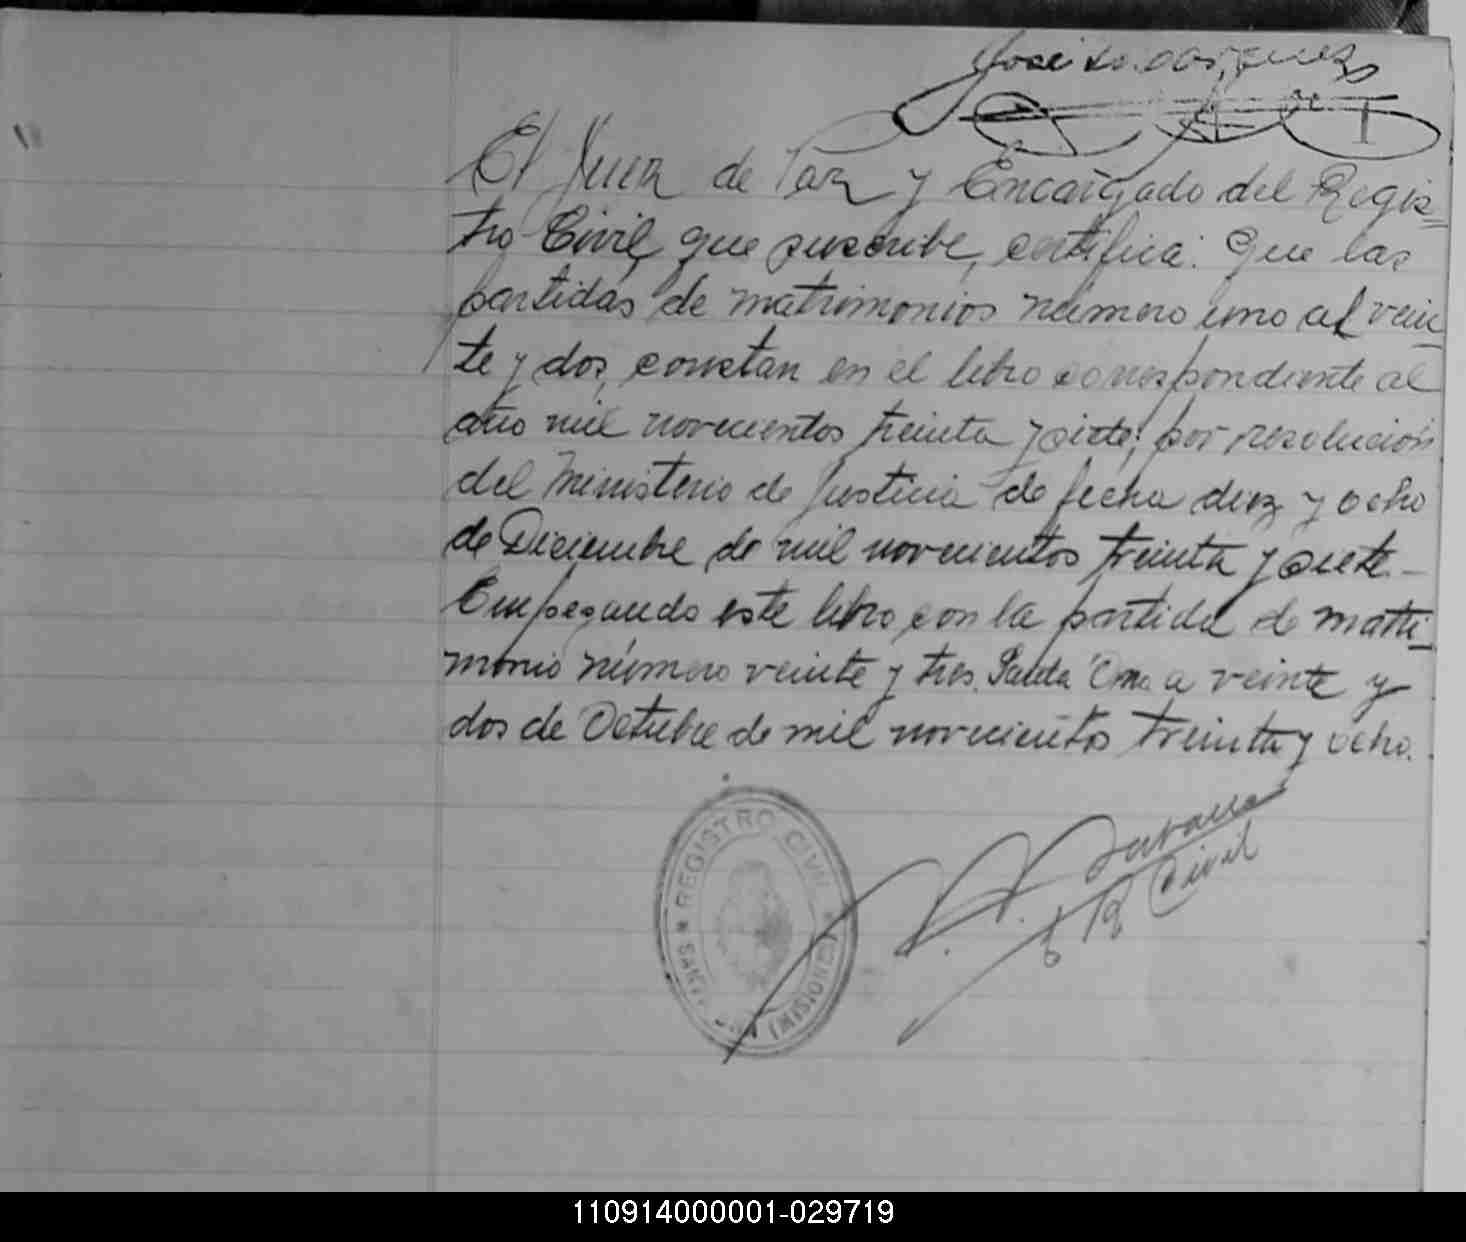 José
El Juez de Paz y Encargado del Regis=
tro Civil, que suscribe, certifica: Que las
partidas de matrimonios número uno al vein
te y dos, constan en el libro correspondiente al
año mil novecientos treinta y siete, por resolución
del Ministerio de Justicia de fecha diez y ocho
de Diciembre de mil novecientos treinta y siete.-
Empezando este libro con la partida de matri
monio número veinte y tres. Santa Ana a veinte y
dos de Octubre de mil novecientos treinta y ocho.
REGISTRO CIVIL
SANTA ANA (MISIONES)
R Civil
110914000001-029719